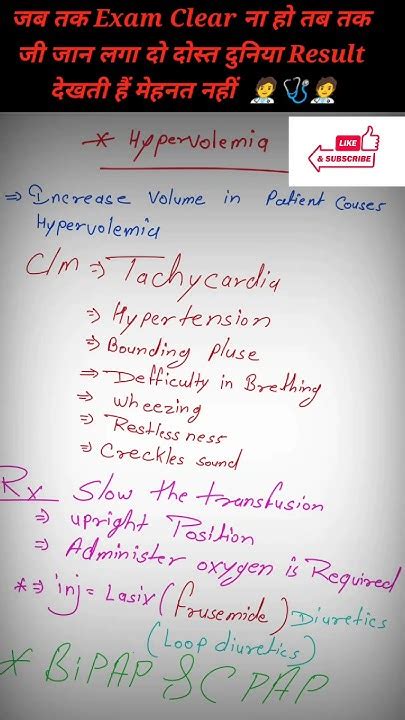 जब तक Exam Clear ना हो तब तक
जी जान लगा दो दोस्त दुनिया Result
देखती हैं मेहनत नहीं
* Hypervolemia
LIKE
& SUBSCRIBE
⇒ Increase Volume in Patient Couses
Hypervolemia
C/m ⇒ Tachycardia
⇒ Hypertension
⇒ Bounding Pluse
⇒ Defficulty in Brething
⇒ Wheezing
⇒ Restlessness
⇒ Creckles sound
Rx Slow the transfusion
⇒ upright Position
⇒ Administer oxygen is Required
* ⇒ inj = Lasix (frusemide) Diuretics
(Loop diuretics)
* BiPAP & CPAP